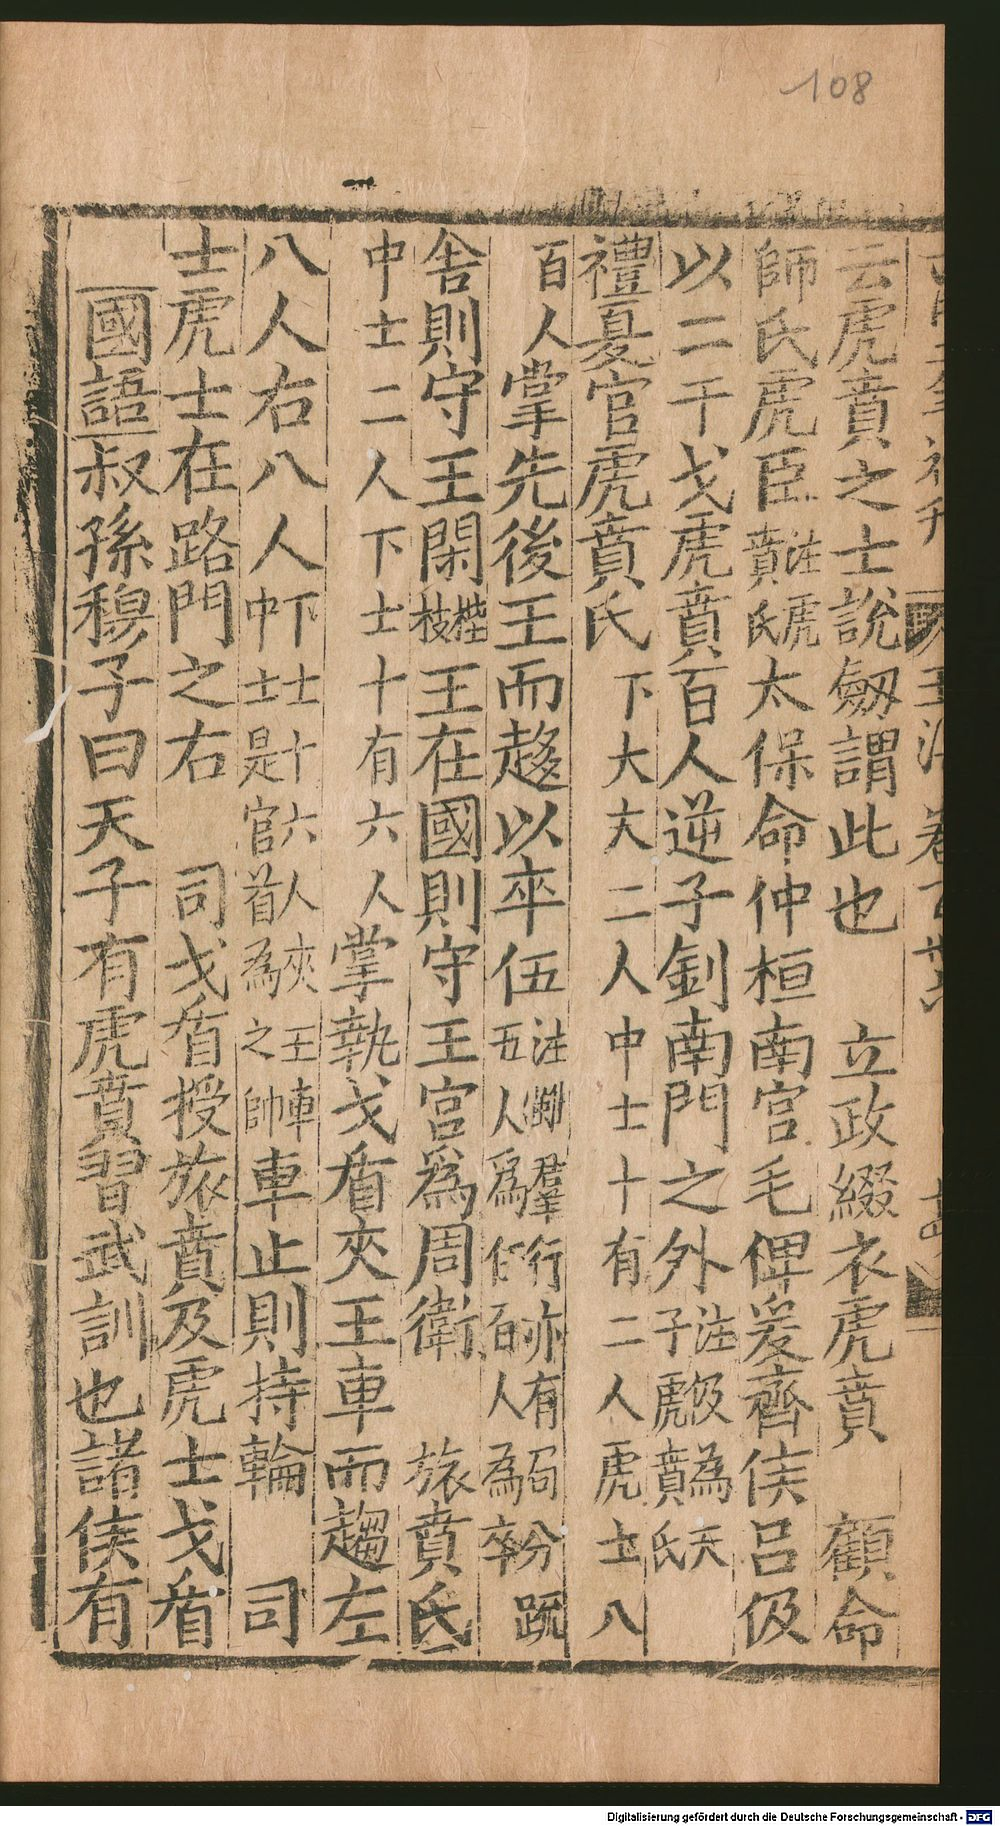 108
云虎賁之士說劔謂此也　立政綴衣虎賁　顧命
師氏虎臣注虎賁氏太保命仲桓南宮毛俾爰齊侯呂伋
以二干戈虎賁百人逆子釗南門之外注伋為天子虎賁氏
禮夏官虎賁氏下大夫二人中士十有二人虎士八
百人掌先後王而趍以卒伍注羣行亦有局分五人爲伍百人為卒疏
舎則守王閑梐枑王在國則守王宮爲周衛　旅賁氏
中士二人下士十有六人掌執戈盾夾王車而趨左
八人右八人下士十六人夾王車中士是官首為之帥車止則持輪　司
士虎士在路門之右　司戈盾授旅賁及虎士戈盾
國語叔孫穆子曰天子有虎賁習武訓也諸侯有
Digitalisierung gefördert durch die Deutsche Forschungsgemeinschaft - DFG